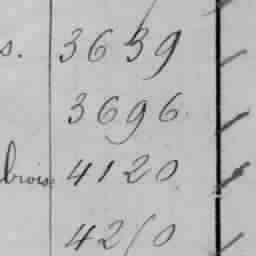 s. 3639
3696
brois 4120
4210